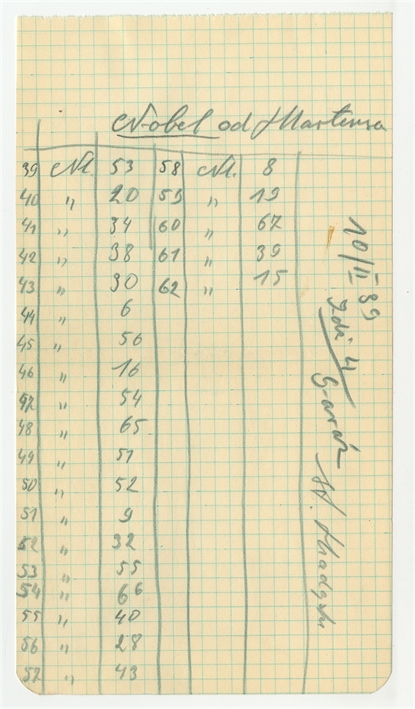 Nobel od Martensa
39 Nl. 53 58 Nl. 8
40 " 20 59 " 19
41 " 34 60 " 67
42 " 38 61 " 39
43 " 30 62 " 15
44 " 6
45 " 56
46 " 16
47 " 54
48 " 65
49 " 51
50 " 52
51 " 9
52 " 32
53 " 55
54 " 66
55 " 40
56 " 28
57 " 43
10/II 39